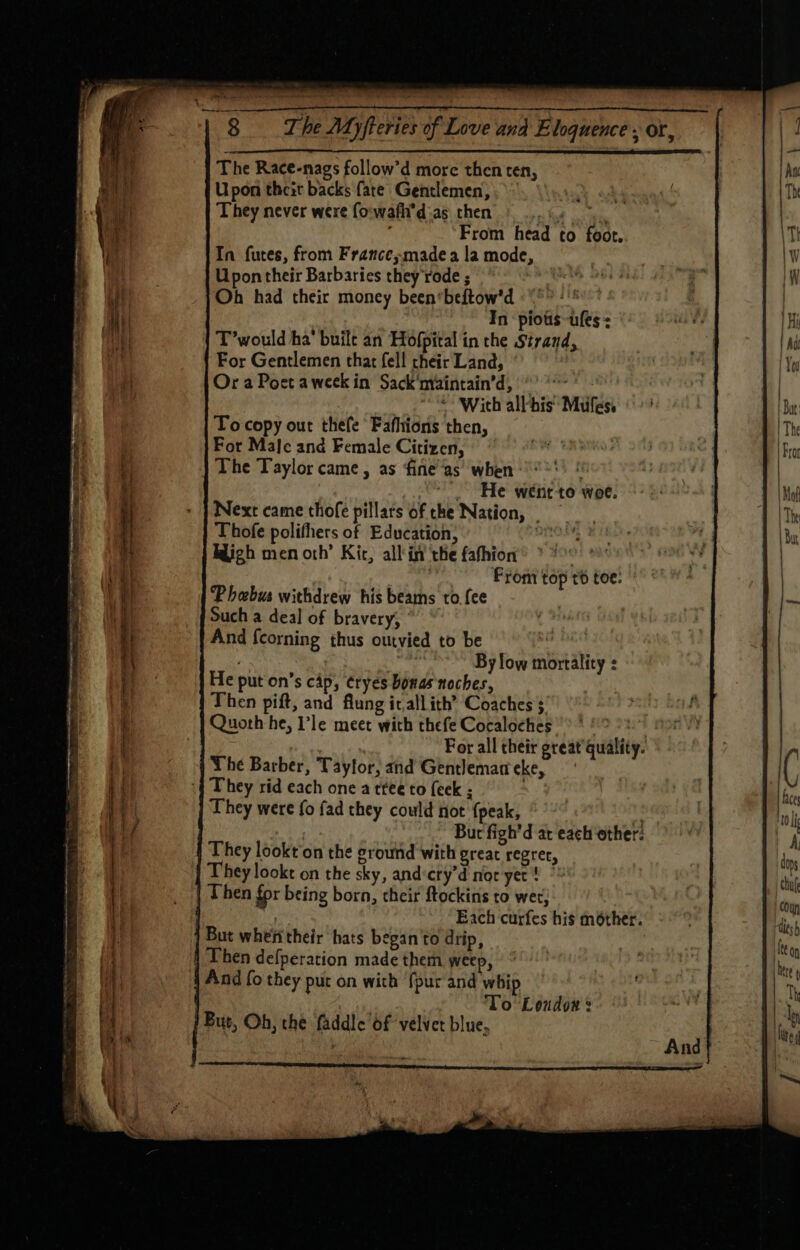 8 The Myſteries of Love and Eloquence; or,
The Race-nags follow'd more then ten,
Upon their backs ſate Gentlemen,
They never were ſo waſh'd as then
From head to foot.
In ſutes, from France, made a la mode,
Upon their Barbaries they rode;
Oh had their money been beſtow'd
In pious uſes:
T'would ha' built an Hoſpital in the Strand,
For Gentlemen that fell their Land,
Or a Poet a week in Sack maintain'd,
With all his Muſes.
To copy out theſe Faſhions then,
For Male and Female Citizen,
The Taylor came, as fine as when
He went to woe.
Next came thoſe pillars of the Nation,
Thoſe poliſhers of Education,
High men oth' Kit, all in the faſhion
From top to toe:
Phœbus withdrew his beams to ſee
Such a deal of bravery,
And ſcorning thus outvied to be
By low mortality:
He put on's cap, cryes bonas noches,
Then piſt, and flung it all ith' Coaches;
Quoth he, I'le meet with theſe Cocaloches
For all their great quality.
The Barber, Taylor, and Gentleman eke,
They rid each one a tree to ſeek;
They were ſo ſad they could not ſpeak,
But ſigh'd at each other:
They lookt on the ground with great regret,
They lookt on the sky, and cry'd not yet!
Then for being born, their ſtockins to wet,
Each curſes his mother.
But when their hats began to drip,
Then deſperation made them weep,
And ſo they put on with ſpur and whip
To London:
But, Oh, the ſaddle of velvet blue,
And